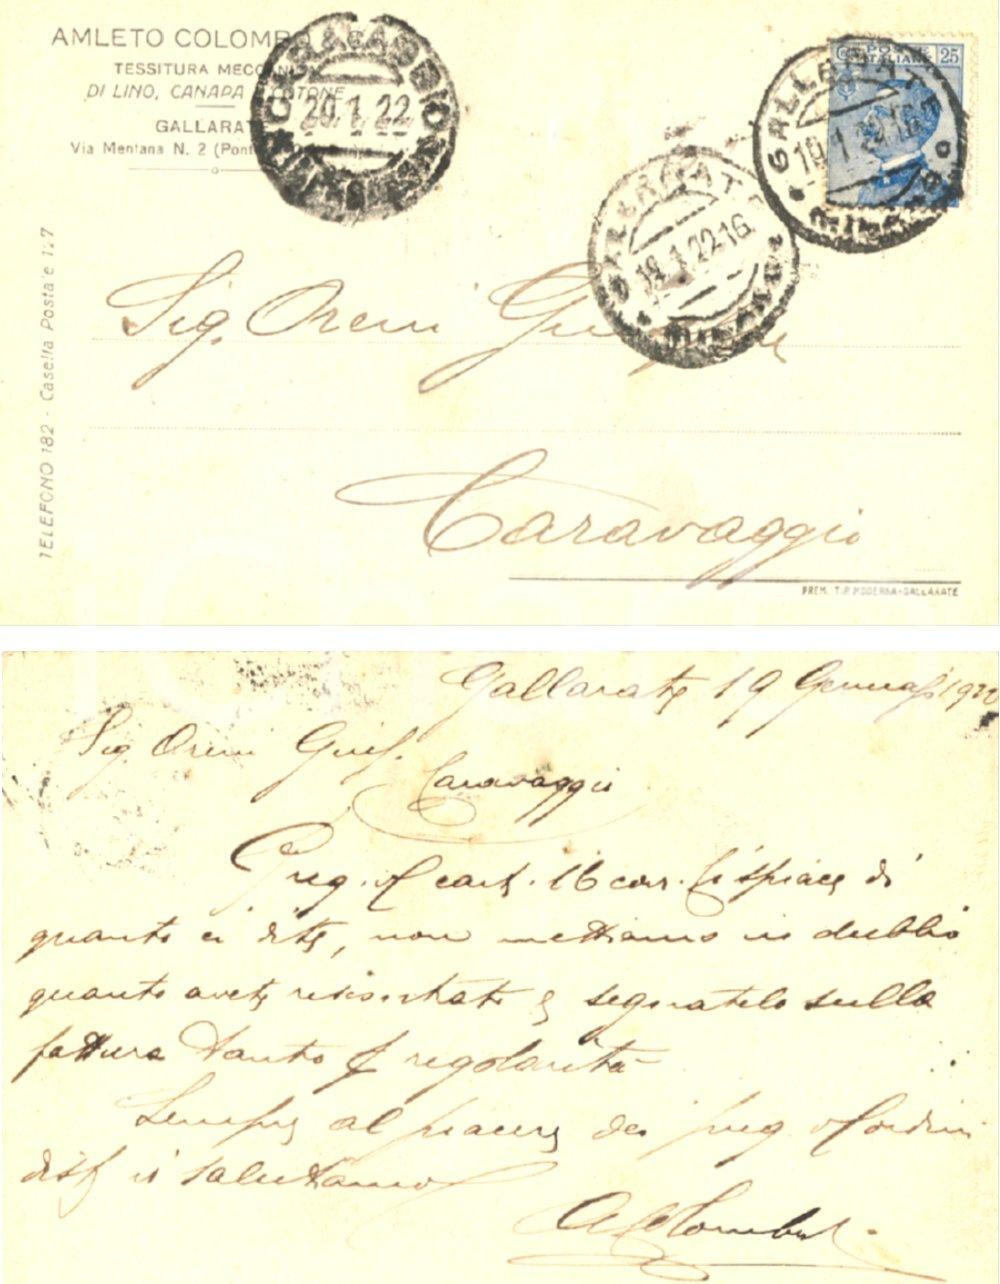 AMLETO COLOMBO &
TESSITURA MECCANICA
DI LINO, CANAPA E COTONE
GALLARATE
Via Mentana N. 2
TELEFONO 182 - Casella Postale 127
CARAVAGGIO
20.1.22
POSTE ITALIANE 25
GALLARATE
19.1.22.16
MILANO
GALLARATE
19.1.22.16
MILANO
Sig. Oreni
Caravaggio
PREM. TIP. MODERNA - GALLARATE
Gallarate 19 1922
Sig. Oreni Gius.
Caravaggio
Preg. cart. 16 corr. Ci spiace di
quanto ci dite, non mettiamo in dubbio
quanto avete riscontrato e segnatelo sulla
fattura tanto regolarità
Sempre al piacere dei preg. ordini
dist. vi salutiamo
A Colombo